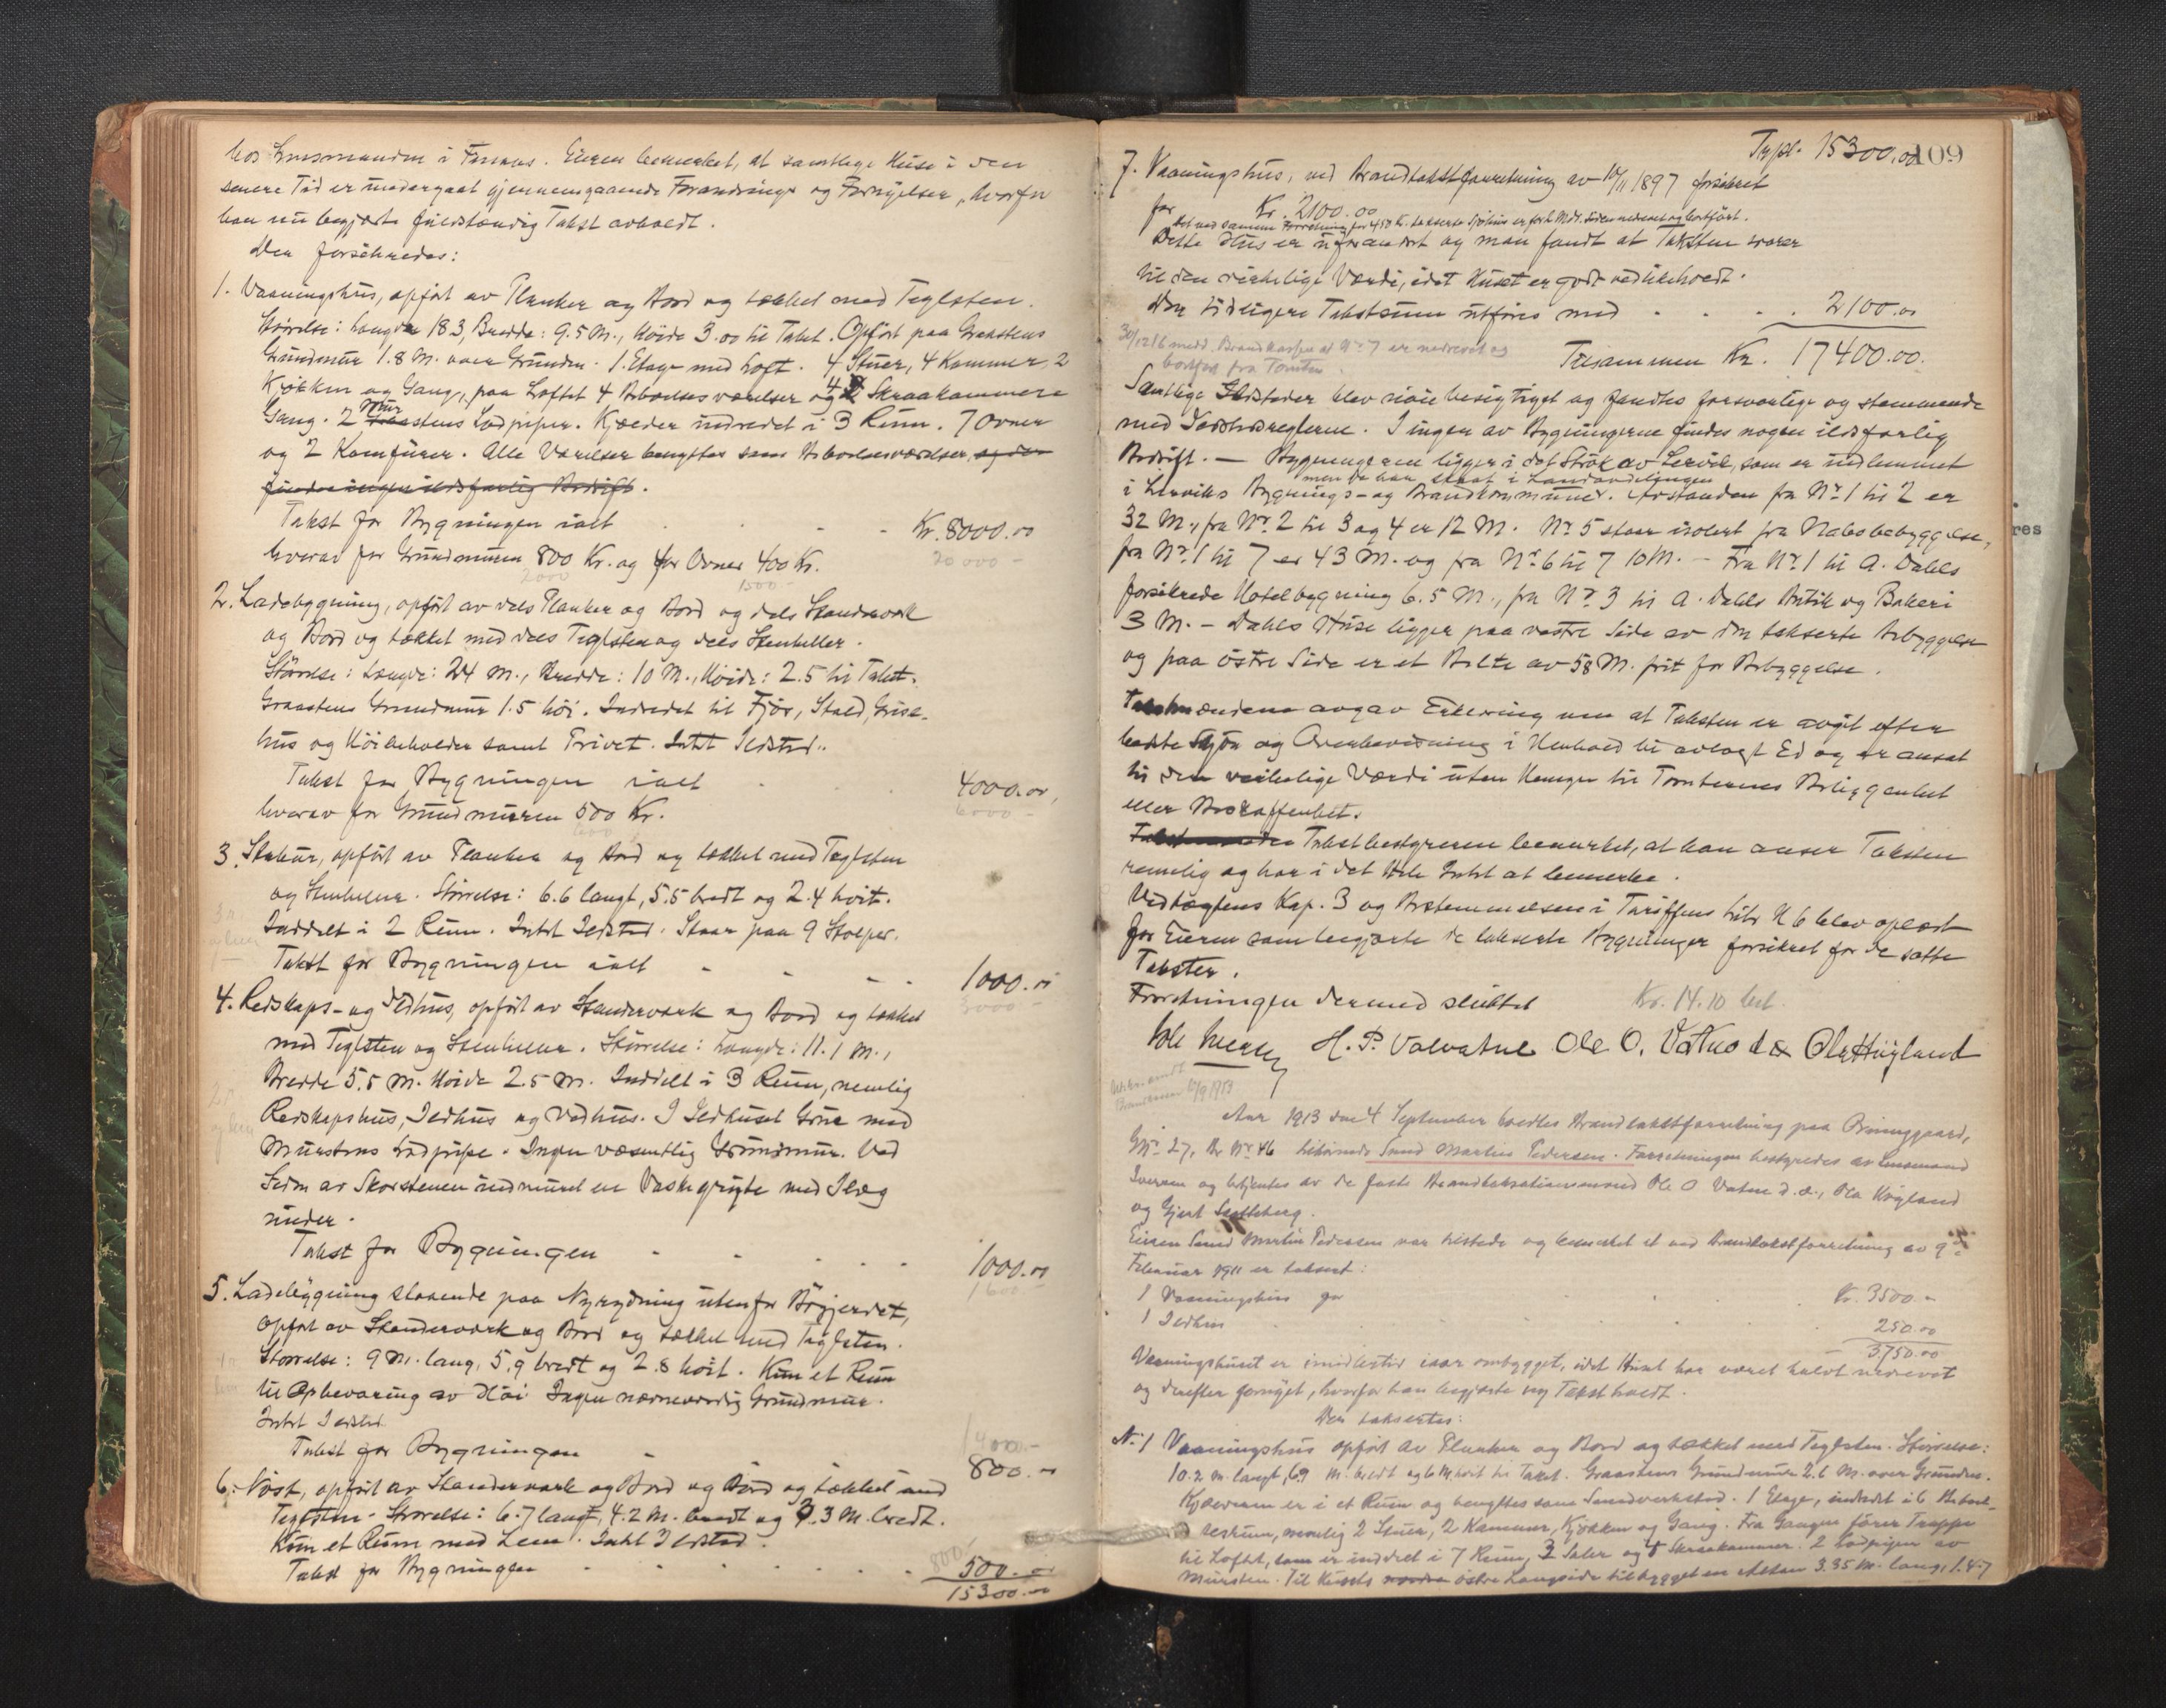 hos Lensmanden i Finnaas. Eieren bemerket, at samtlige Huse i den
senere Tid er undergaat gjennemgaaende Forandringer og Fornyelser, hvorfor
han nu begjærte fuldstændig Takst avholdt.
Der forsikredes:
1. Vaaningshus, opført av Planker og Bord og tækket med Teglsten.
Størrelse: Længde 18.3, Bredde: 9.5 M., Høide 3.00 til Taket. Opført paa Graastens
Grundmur 1.8 M. over Grunden. 1. Etage med Loft. 4 Stuer, 4 Kammer, 2
Kjøkken og Gang, paa Loftet 4 Beboelsesværelser og 4 Skraakammere
Gang. 2 Murstens Lodpiper. Kjælder indredet i 3 Rum. 7 Ovner
og 2 Komfurer. Alle Værelser benyttes som Beboelsesværelser, og der
findes ingen ildsfarlig Bedrift.
Takst for Bygningen ialt Kr. 8000.00
20000 -
hvorav for Grundmuren 800 Kr. og for Ovner 400 Kr.
2000 1500 -
2. Ladebygning, opført av dels Planker og Bord og dels Standerværk
og Bord og tækket med dels Teglsten og dels Stenheller.
Størrelse: Længde: 24 M., Bredde: 10 M., Høide: 2.5 til Taket.
Graastens Grundmur 1.5 høi. Indredet til Fjøs, Stald, Grise-
hus og Høibeholder samt Privet. Intet Ildsted.
Takst for Bygningen ialt 4000.00
6000 -
hvorav for Grundmuren 500 Kr.
600
3. Stabur, opført av Planker og Bord og tækket med Teglsten
og Stenheller. Størrelse: 6.6 langt, 5.5 bredt og 2.4 høit.
Inddelt i 2 Rum. Intet Ildsted. Staar paa 9 Stolper.
Takst for Bygningen ialt 1000.00
3000 -
4. Redskaps- og Ildhus, opført av Standerværk og Bord og tækket
med Teglsten og Stenheller. Størrelse: Længde: 11.1 M.,
Bredde 5.5 M. Høide 2.5 M. Inddelt i 3 Rum, nemlig
Redskapshus, Ildhus og Vedhus. I Ildhuset Grue med
Murstens Lodpipe. Ingen væsentlig Grundmur. Ved
Siden av Skorstenen indmuret en Vaskegryte med Ilæg
under.
Takst for Bygningen 1000.00
1600
5. Ladebygning staaende paa Nyrydning utenfor Bøgjerdet,
opført av Standerværk og Bord og tækket med Teglsten.
Størrelse: 9 M. lang, 5.9 bredt og 2.8 høit. Kun et Rum
til Opbevaring av Høi. Ingen nævneværdig Grundmur.
Intet Ildsted.
Takst for Bygningen 800.00
6. Nøst, opført av Standerværk og Bord og Bord og tækket med
Teglsten. Størrelse: 6.7 langt, 4.2 M. bredt og 2.3 M. bredt.
Kun et Rum med Lem. Intet Ildsted.
Takst for Bygningen 500.00
15300.00
109
Trspt. 15300.00
7. Vaaningshus, ved Brandtakstforretning av 10/11 1897 forsikret
for Kr. 2100.00
Det ved samme Forretning for 450 Kr. takserte Sjøhus er for 2 Mdr. siden nedrevet og bortført.
Dette Hus er uforandret og man fandt at Taksten svarer
til den virkelige Værdi, idet Huset er godt vedlikeholdt.
Den tidligere Takstsum utføres med 2100.00
30/12 16 medd. Brandkassen at No 7 er nedrevet og
bortført fra Tomten.
Tilsammen Kr. 17400.00.
Samtlige Ildsteder blev nøie besigtiget og fandtes forsvarlige og stemmende
med Forskrifterne. I ingen av Bygningerne findes nogen ildsfarlig
Bedrift. — Bygningerne ligger i det Strøk av Lervik, som er indlemmet
men de har staat i Landavdelingen
i Lerviks Bygnings- og Brandkommune. Avstanden fra No 1 til 2 er
32 M., fra No 2 til 3 og 4 er 12 M. No 5 staar isolert fra Nabobebyggelse,
fra No 1 til 7 er 43 M. og fra No 6 til 7 10 M. — Fra No 1 til A. Dahls
forsikrede Hotelbygning 6.5 M., fra No 3 til A. Dahls Butik og Bakeri
3 M. — Dahls Huse ligger paa vestre Side av den takserte Bebyggelse
og paa østre Side er et Belte av 58 M. frit for Bebyggelse.
Takstmændene avgav Erklæring om at Taksten er avgit efter
bedste Skjøn og Overbevisning i Henhold til avlagt Ed og er ansat
til den virkelige Værdi uten Hensyn til Tomternes Beliggenhet
eller Beskaffenhet.
Takstbestyreren bemerket, at han anser Taksten
rimelig og har i det Hele Intet at bemerke.
Vedtægtens Kap. 3 og Bestemmelsen i Tariffens Litr. N 6 blev oplæst
for Eieren som begjærte de takserte Bygninger forsikret for de satte
Takster.
Forretningen dermed sluttet Kr. 14.10 bet.
H. P. Valvatne Ole O. Vatne d.æ. Ola Høyland
Brandkassen 10/9 1913
Aar 1913 den 4 September holdtes Brandtakstforretning paa
Gr. No 27, Br. No 46 tilhørende Smed Martin Pedersen. Forretningen bestyredes av Lensmand
Iversen og betjentes av de faste Brandtaksationsmænd Ole O Vatne d.æ., Ola Høyland
og Gjert
Eieren Smed Martin Pedersen var tilstede og bemerket at ved Brandtakstforretning av 9de
Februar 1911 er takseret:
1 Vaaningshus for Kr. 3500.-
1 Ildhus 250.00
3750.00
Vaaningshuset er imidlertid iaar ombygget, idet Huset har været halvt nedrevet
og derefter fornyet, hvorfor han begjærte ny Takst holdt.
Der taksertes:
No 1 Vaaningshus opført av Planker og Bord og tækket med Teglsten. Størrelse:
10.2 M. langt, 6.9 M. bredt og 6 M. høit til Taket. Graastens Grundmur 2.6 M. over Grunden.
Kjælderen er i et Rum og benyttes som Smedverksted. 1 Etage, indredet i 6 Beboel-
sesrum, nemlig 2 Stuer, 2 Kammer, Kjøkken og Gang. Fra Gangen fører Trappe
til Loftet, som er inddelt i 7 Rum, 2 Saler og 5 Skraakammer. 2 Lodpiper av
Mursten. Til Husets østre Langside tilbygget en Altan 3.35 M. lang, 1.47